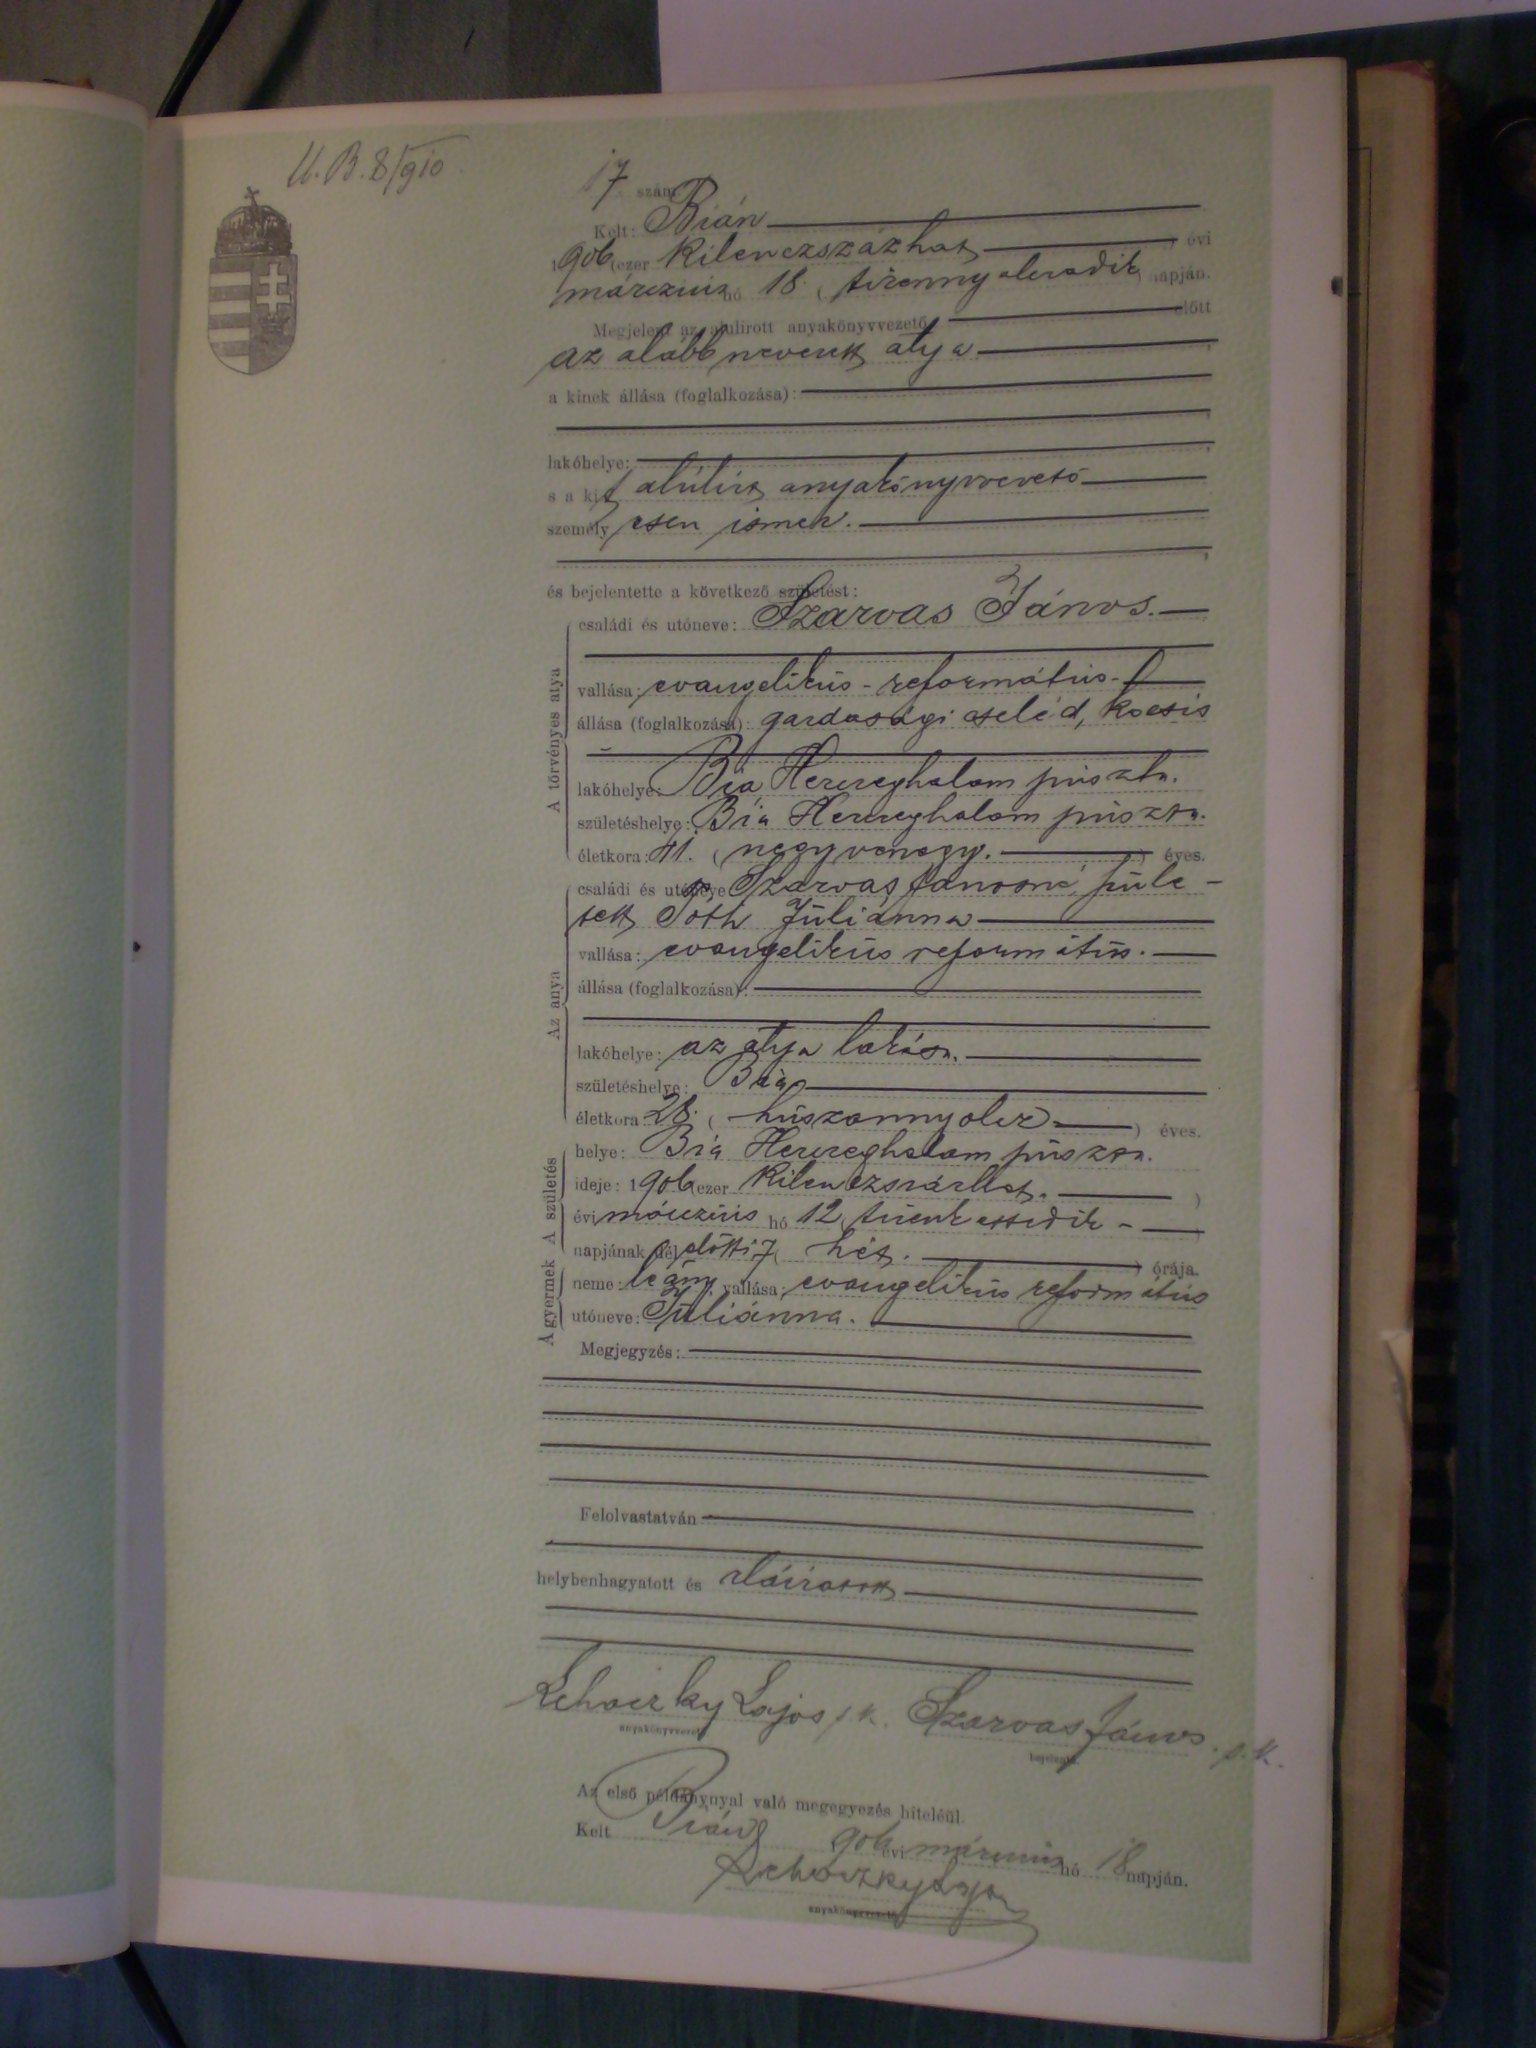 U. B. 8/910
17 szám
Kelt: Bián
1906 (ezer kilenczszázhat ) évi
márczius hó 18 ( tizennyolczadik ) napján.
Megjelent az alulirott anyakönyvvezető előtt
az alább nevezett atya
a kinek állása (foglalkozása):
lakóhelye:
s a kit alúlirt anyakönyvvezető
személyesen ismer.
és bejelentette a következő születést:
A törvényes atya
családi és utóneve: Szarvas János.
vallása: evangelikús-reformátús
állása (foglalkozása): gazdasági cseléd, kocsis
lakóhelye: Bia Herczeghalom púszta.
születéshelye: Bia Herczeghalom púszta.
életkora: 41. ( negyvenegy. ) éves.
Az anya
családi és utóneve Szarvas Jánosné, szüle-
tett Tóth Júliánna
vallása: evangelikús reformátús.
állása (foglalkozása):
lakóhelye: az atya lakása.
születéshelye: Bia
életkora: 28. ( húszonnyolcz ) éves.
A születés
helye: Bia Herczeghalom púszta.
ideje: 1906 (ezer kilenczszázhat. )
évi márczius hó 12 ( tizenkettedik - )
napjának dél előtti 7 ( hét. ) órája.
A gyermek
neme: leány. vallása: evangelikús reformátús
utóneve: Júliánna.
Megjegyzés:
Felolvastatván
helybenhagyatott és aláiratott
Lehoczky Lajos s.k. Szarvas János. s.k.
anyakönyvvezető bejelentő.
Az első példánynyal való megegyezés hiteléül.
Kelt Bián 906 évi márczius hó 18 napján.
Lehoczky Lajos
anyakönyvvezető